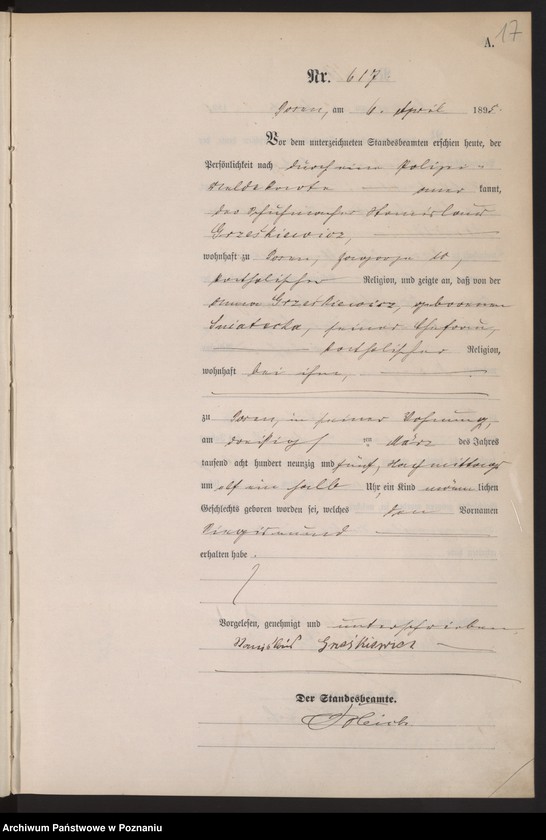 A. 17
Nr. 617
Posen, am 6. April 1895.
Vor dem unterzeichneten Standesbeamten erschien heute, der
Persönlichkeit nach durch eine Polizei-
Meldekarte anerkannt,
der Schuhmacher Stanislaus
Grześkiewicz,
wohnhaft zu Posen,
katholischer Religion, und zeigte an, daß von der
Grześkiewicz, geborenen
Swiatecka, seiner Ehefrau,
katholischer Religion,
wohnhaft bei ihm,
zu Posen, in seiner Wohnung,
am dreißigsten März des Jahres
tausend acht hundert neunzig und fünf, Nachmittags
um elf ein halb Uhr, ein Kind männlichen
Geschlechts geboren worden sei, welches den Vornamen
Siegismund
erhalten habe.
Vorgelesen, genehmigt und unterschrieben
Stanisław Grześkiewicz
Der Standesbeamte.
Archiwum Państwowe w Poznaniu